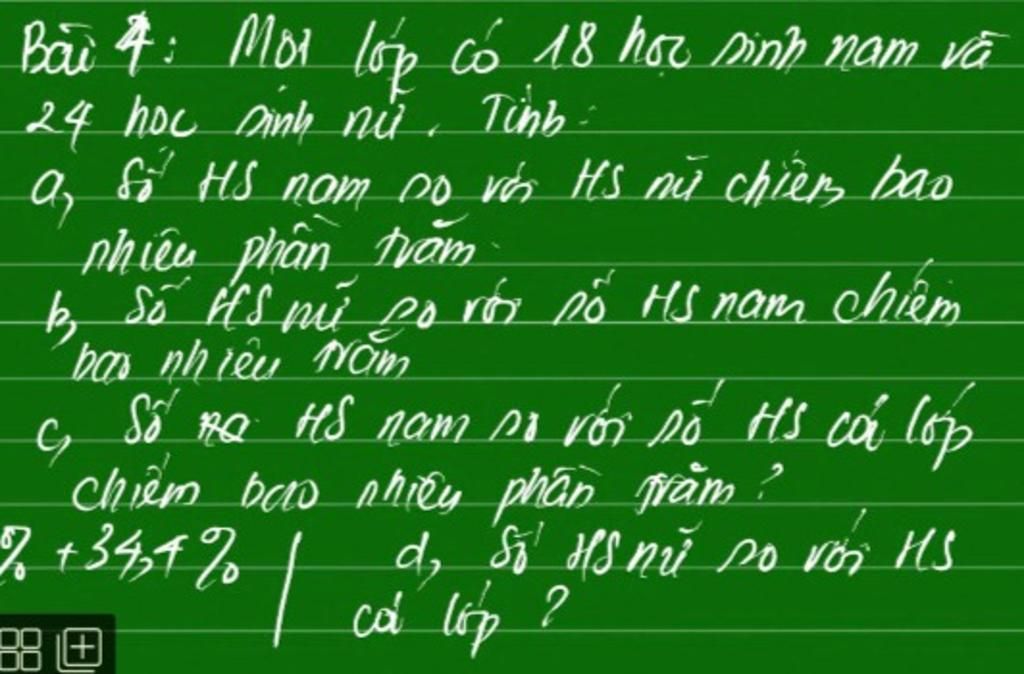 Bài 4: Một lớp có 18 học sinh nam và
24 học sinh nữ. Tính:
a, Số HS nam so với HS nữ chiếm bao
nhiêu phần trăm
b, Số HS nữ so với số HS nam chiếm
bao nhiêu trăm
c, Số HS nam so với số HS cả lớp
chiếm bao nhiêu phần trăm?
% + 34,4% | d, Số HS nữ so với HS
cả lớp?